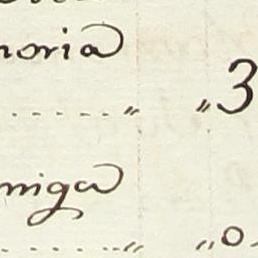 noria
.......„ „3
miga
.......„ „0